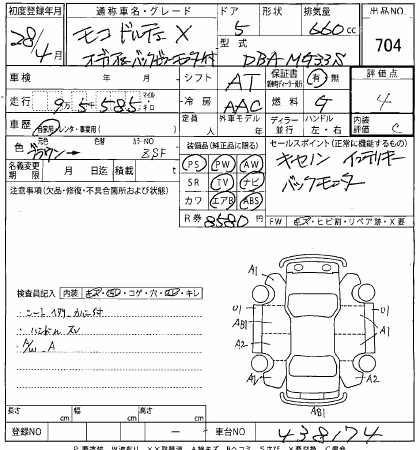 初度登録年月 通称車名・グレード ドア 形状 排気量 出品NO
28/4月 モコ ドルチェ X 5 660cc 704
オーディオ・バックモニター付 型式 DBA-MG33S
車検 年 月 シフト AT 保証書 有 無 評価点
走行 9万5千585 マイル キロ 冷房 AAC 燃料 G 4
車歴 自家用 レンタ・事業用( ) 定員 人 外車モデル 年 ディーラー 並行 ハンドル 左・右 内装評価 C
色 元色 ブラウン → 色替 カラーNO ZSF 装備品(純正品に限る) セールスポイント(正常に機能するもの)
名義変更期限 月 日迄 積載 t PS PW AW キセノン インテリキー
注意事項(欠品・修復・不具合箇所および状態) SR TV ナビ バックモニター
カワ エアB ABS
R券 8580円 FW キズ・ヒビ割・リペア跡・X要
検査員記入 内装 キズ・コゲ・穴・キレ
ハンドル スレ
A/W A
A1
A1
U1
U1
AB1
A1
A2
A2
A2
AB1
長さ cm 幅 cm 高さ cm
登録NO — 車台NO 438174